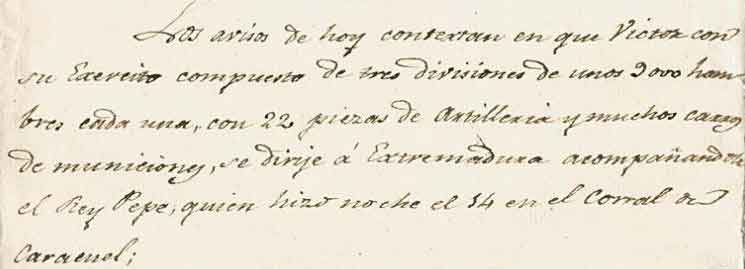 Los avisos de hoy contextan en que Victor con
su Exercito compuesto de tres divisiones de unos 9000 hom-
bres cada una, con 22 piezas de Artilleria y muchos carros
de municiones, se dirije á Extremadura acompañandole
el Rey Pepe, quien hizo noche el 14 en el Corral de
Caracuel;